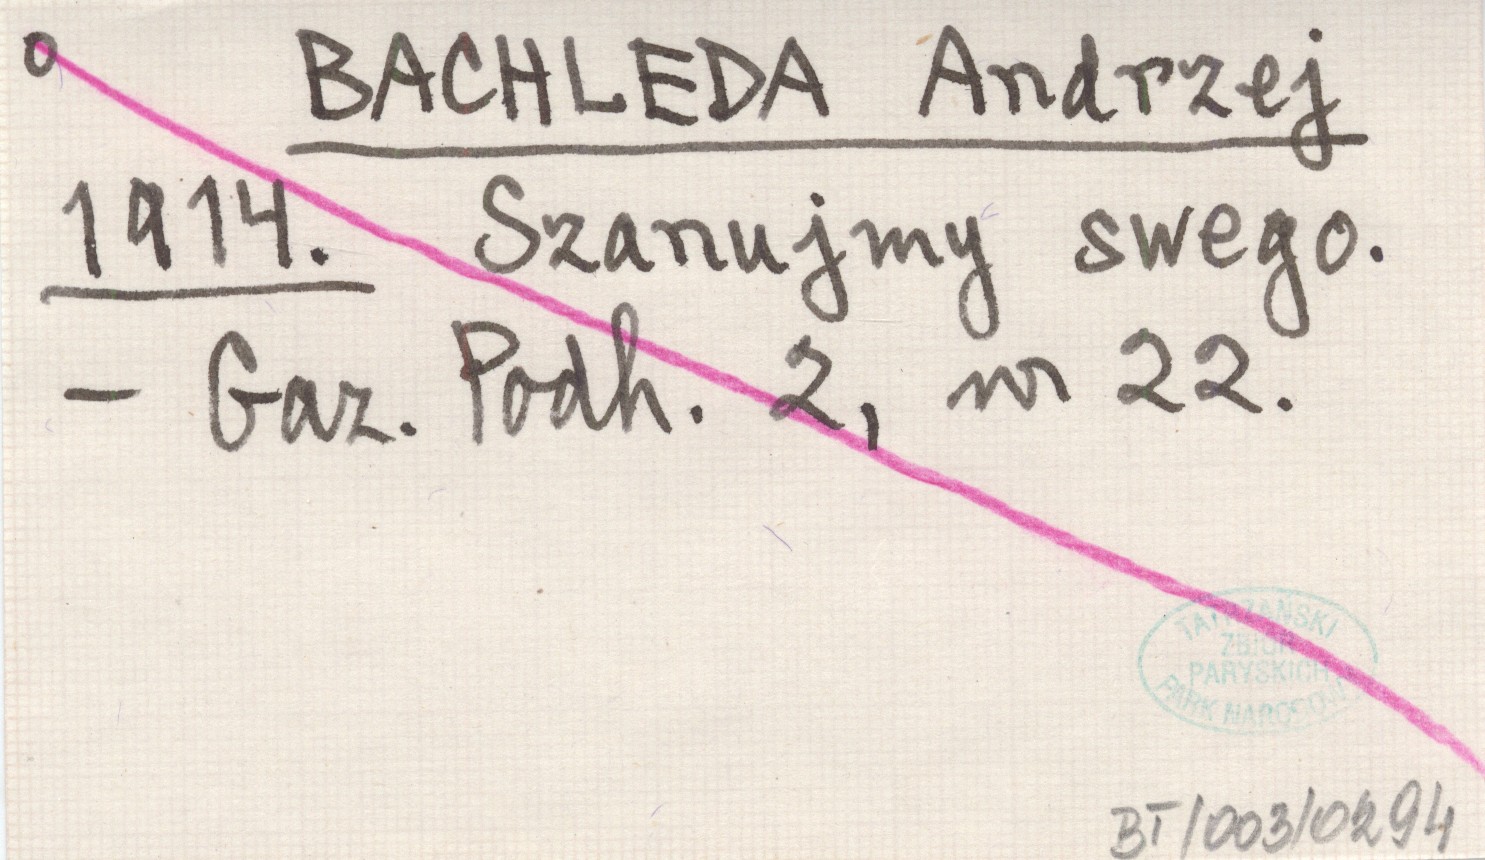 BACHLEDA Andrzej
1914. Szanujmy swego.
- Gaz. Podh. 2, nr 22.
TATRZAŃSKI
ZBIÓR
PARYSKICH
PARK NARODOWY
BT/003/0294